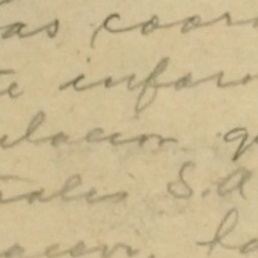 as coor
te infor
ulacion q
rales S.A
acion, la